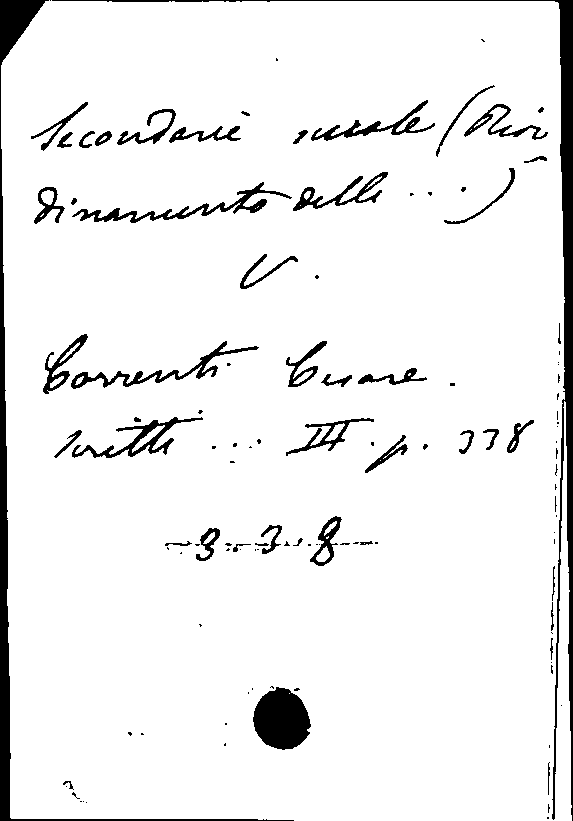 Secondarie scuole (Rior
dinamento delle ...)
V.
Correnti Cesare.
scritti ... III. p. 338
3.3.8